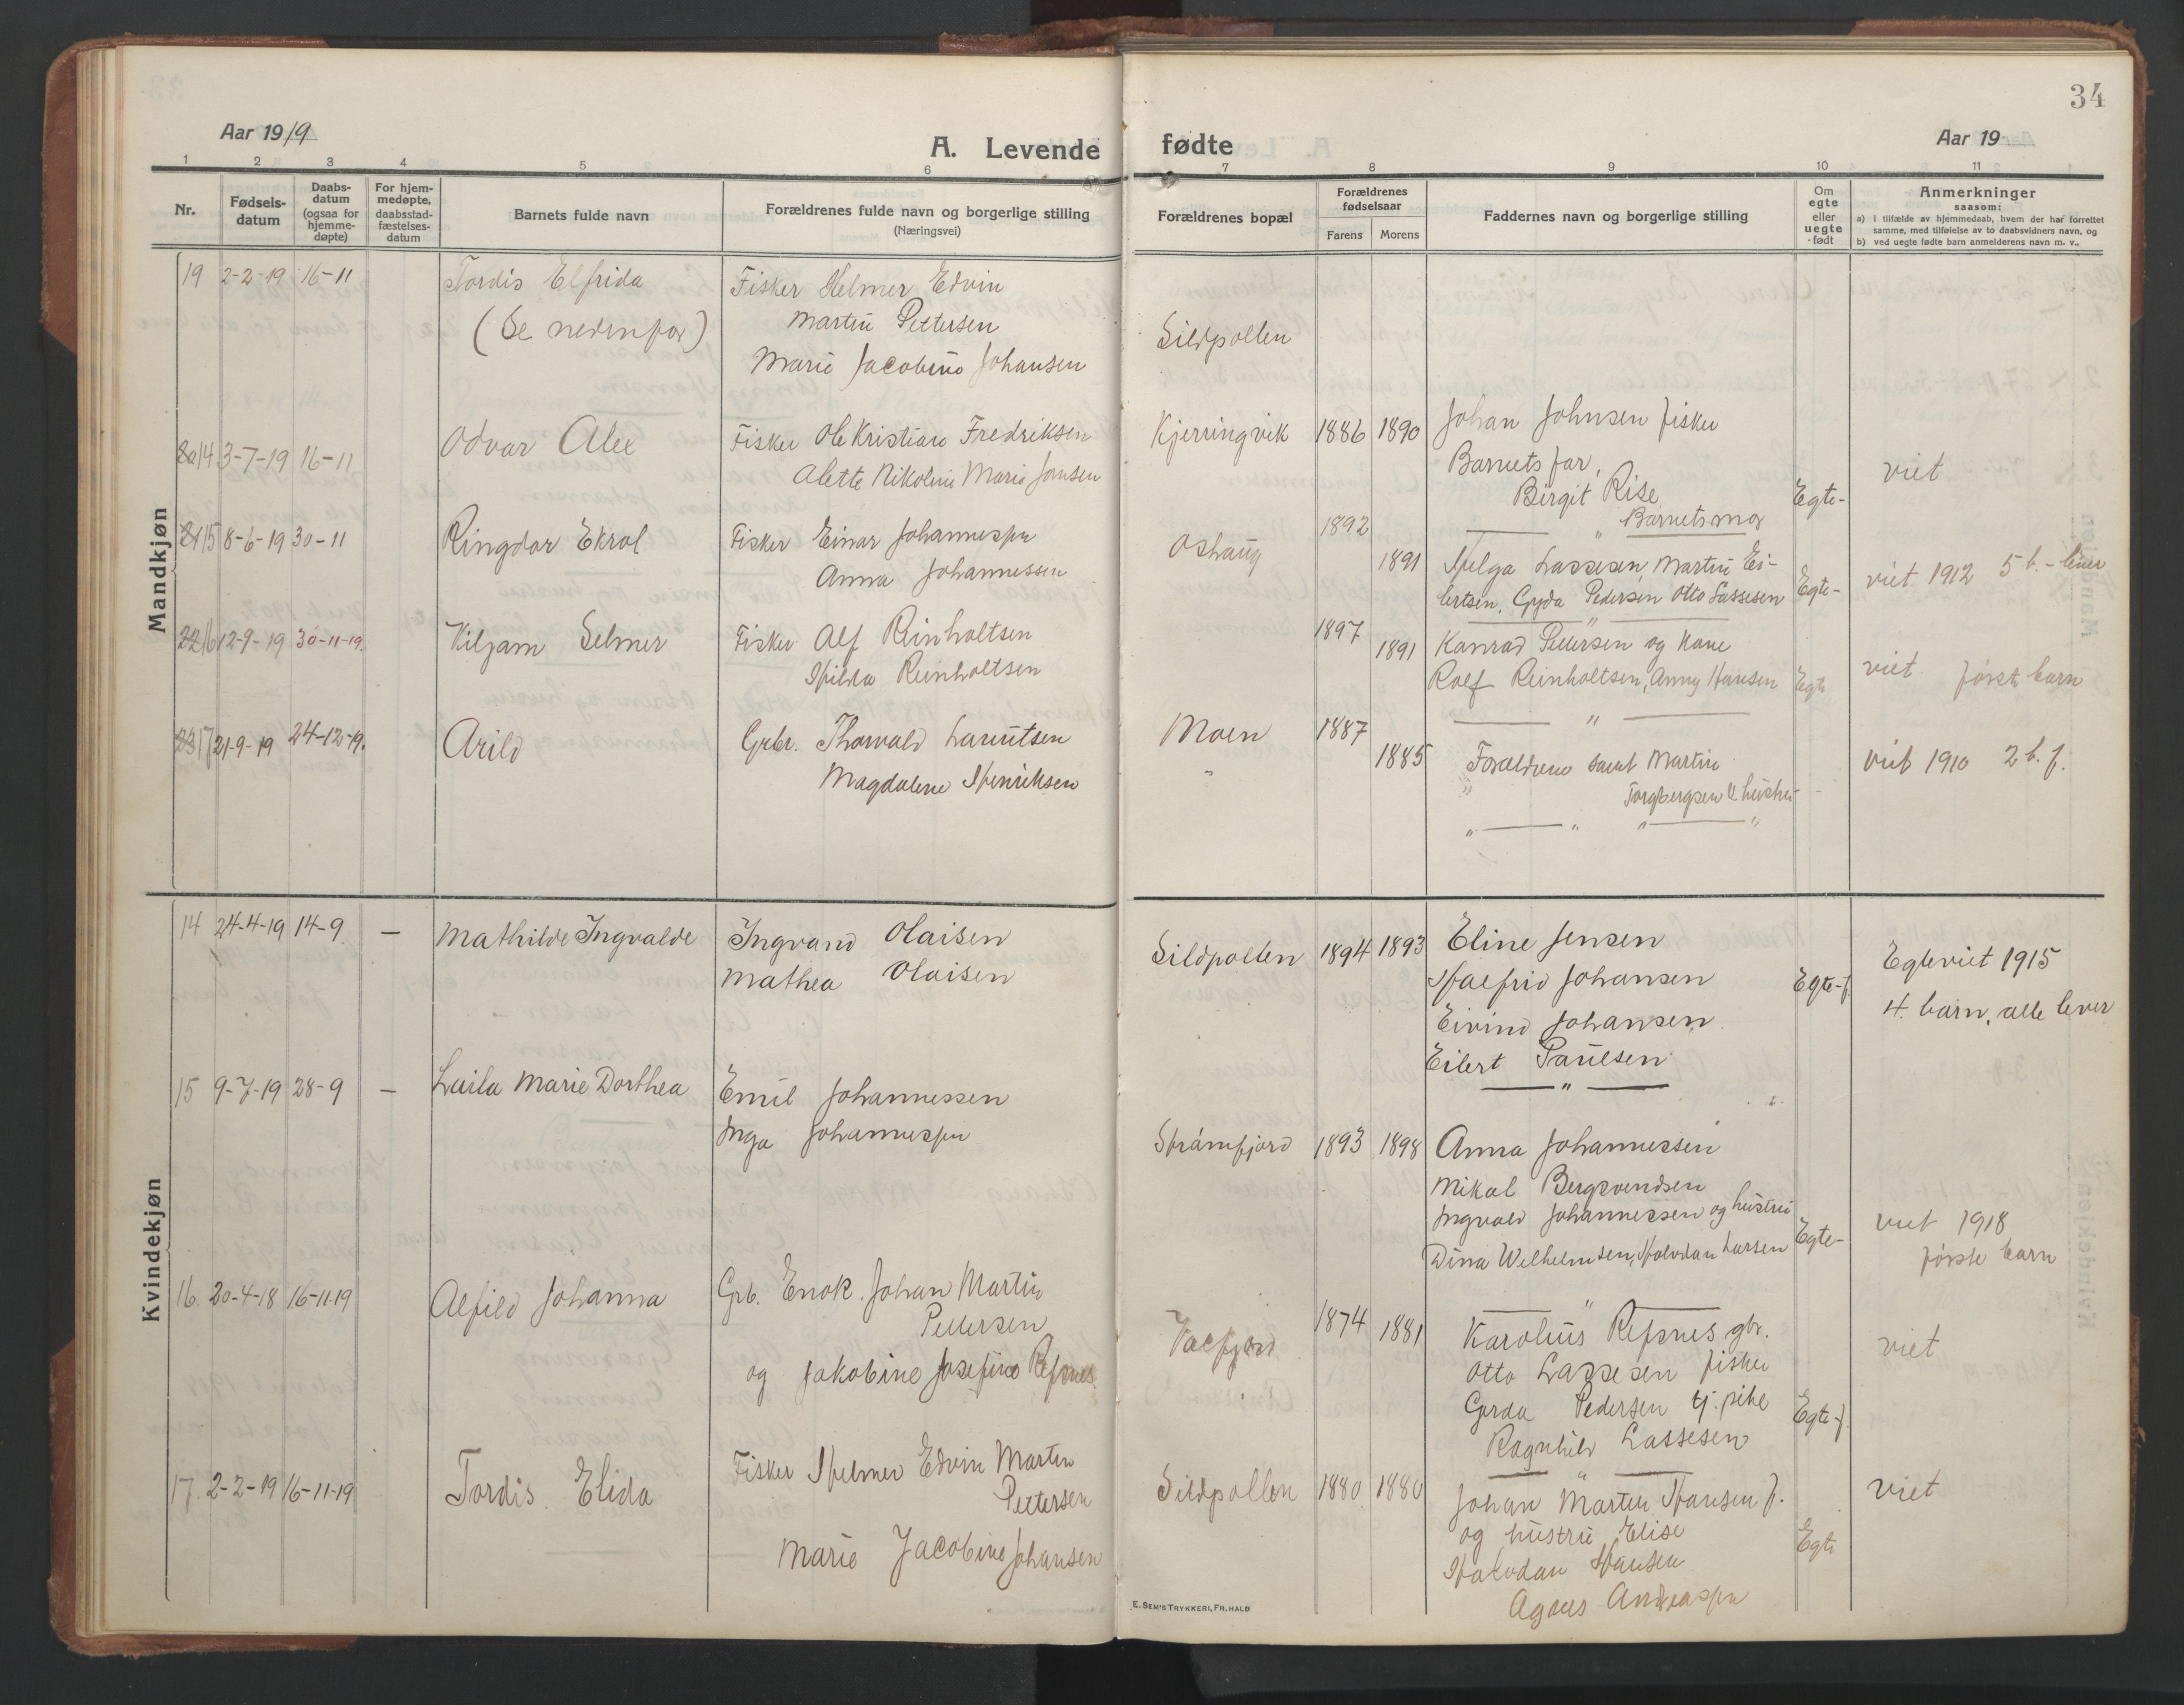 34
Aar 1919
A. Levende fødte
Aar 19
1 2 3 4 5 6 7 8 9 10 11
Nr.
Fødsels-
datum
Daabs-
datum
(ogsaa for
hjemme-
døpte)
For hjem-
medøpte,
daabsstad-
fæstelses-
datum
Barnets fulde navn
Forældrenes fulde navn og borgerlige stilling
(Næringsvei)
Forældrenes bopæl
Forældrenes
fødselsaar
Farens Morens
Faddernes navn og borgerlige stilling
Om
egte
eller
uegte
født
Anmerkninger
saasom:
a) i tilfælde av hjemmedaab, hvem der har forrettet
samme, med tilføielse av to daabsvidners navn, og
b) ved uegte fødte barn anmelderens navn m. v..
Mandkjøn
19 2-2-19 16-11 Tordis Elfrida Fisker Helmer Edvin
(Se nedenfor) Martin Pettersen
Marie Jacobine Johansen
Sildpollen
14 3-7-19 16-11 Odvar Alee Fisker Ole Kristian Fredriksen
Alette Nikoline Marie Jonsen
Kjerringvik 1886 1890 Johan Johnsen fisker
Barnets far,
Birgit Rise
" Barnets mor
Egte-
viet
15 8-6-19 30-11 Ringdor Ekrol Fisker Einar Johannessen
Anna Johannessen
Oshaug 1892 1891 Helga Lassesen, Martin Ei-
lertsen, Gyda Pedersen, Otto Lassesen
"
Egte-
viet 1912 5 b. - lever
22 16 12-9-19 30-11-19. Viljam Selmer Fisker Alf Reinholtsen
Hilda Reinholtsen
1897 1891 Konrad Pettersen og Kone
Rolf Reinholtsen, Anny Hansen
"
Egte
viet. første barn
23 17 21-9-19 24-12-19. Arild Grbr. Thorvald Lauritsen
Magdalene Henriksen
Moen 1887 1885 Forældrene samt Martin
Torgbergsen & hustru
" " " "
viet 1910 2 b. f.
Kvindekjøn
14 24-4-19 14-9. — Mathilde Ingvalde Ingvard Olaisen
Mathea Olaisen
Sildpollen 1894 1893 Eline Jensen
Halfrid Johansen
Eivind Johansen
Eilert Paulsen
"
Egte-f.
Egteviet 1915
4. barn, alle lever
15 9-7-19 28-9 — Laila Marie Dorthea Emil Johannessen
Inga Johannessen
Straumfjord 1893 1898 Anna Johannessen
Mikal Bergsvendsen
Ingvald Johannessen og hustru
Dina Wilhelmsen, Halvdan Larsen
"
Egte-
viet 1918
første barn
16. 20-4-18 16-11-19 Alfild Johanna Grb. Enok Johan Martin
Pettersen
og Jakobine Josefine Refsnes
1874 1881 Karolius Refsnes gbr.
Otto Lassesen fisker
Gerda Pedersen tj. pike
Ragnhild Lassesen
"
Egte-f.
viet
17. 2-2-19 16-11-19 Tordis Elida Fisker Helmer Edvin Martin
Pettersen
Marie Jacobine Johansen
Sildpollen 1880 1880 Johan Martin Hansen f.
og hustru Elise
Halvdan Hansen
Agnes Andreassen
Egte
viet
E. SEM'S TRYKKERI, FR. HALD